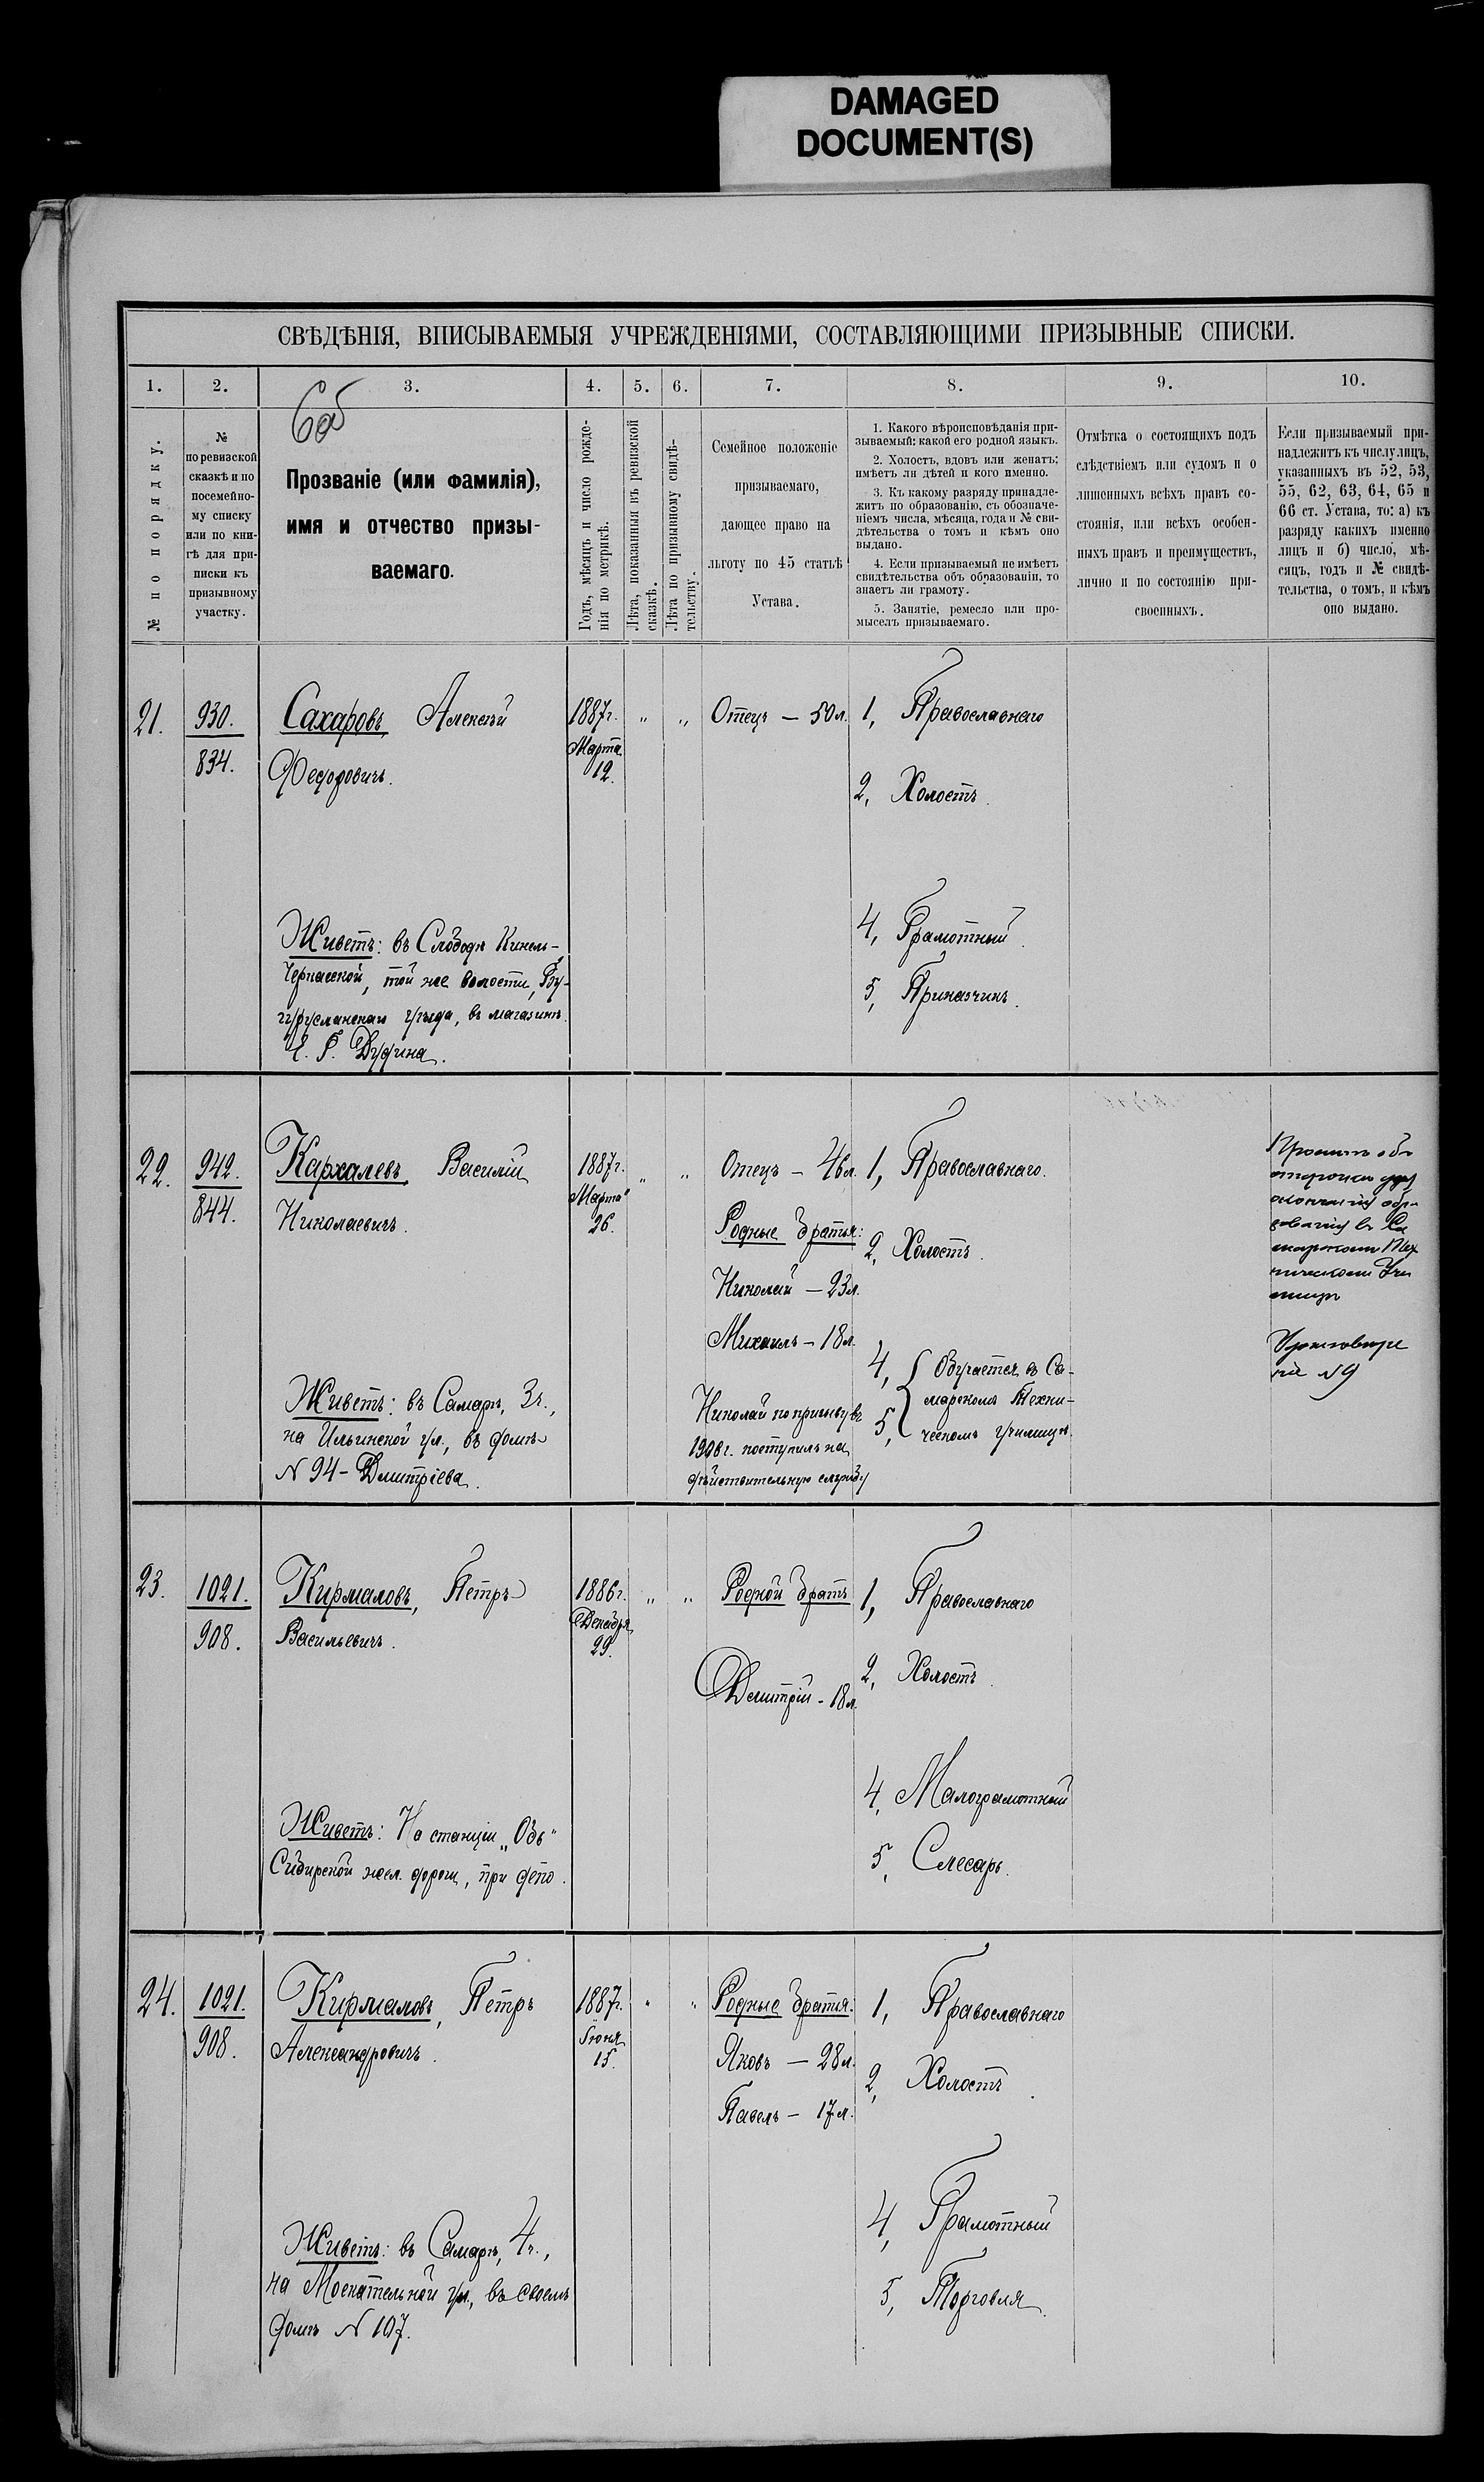 DAMAGED
DOCUMENT(S)
СВѢДѢНІЯ, ВПИСЫВАЕМЫЯ УЧРЕЖДЕНІЯМИ, СОСТАВЛЯЮЩИМИ ПРИЗЫВНЫЕ СПИСКИ.
1.
2.
3.
4.
5.
6.
7.
8.
9.
10.
№ по порядку.
№
по ревизской
сказкѣ и по
посемейно-
му списку
или по кни-
гѣ для при-
писки къ
призывному
участку.
Прозваніе (или фамилія),
имя и отчество призы-
ваемаго.
Годъ, мѣсяцъ и число рожде-
нія по метрикѣ.
Лѣта, показанныя въ ревизской
сказкѣ.
Лѣта по призывному свидѣ-
тельству.
Семейное положеніе
призываемаго,
дающее право на
льготу по 45 статьѣ
Устава.
1. Какого вѣроисповѣданія при-
зываемый; какой его родной языкъ.
2. Холостъ, вдовъ или женатъ;
имѣетъ ли дѣтей и кого именно.
3. Къ какому разряду принадле-
житъ по образованію, съ обозначе-
ніемъ числа, мѣсяца, года и № сви-
дѣтельства о томъ и кѣмъ оно
выдано.
4. Если призываемый не имѣетъ
свидѣтельства объ образованіи, то
знаетъ ли грамоту.
5. Занятіе, ремесло или про-
мыселъ призываемаго.
Отмѣтка о состоящихъ подъ
слѣдствіемъ или судомъ и о
лишенныхъ всѣхъ правъ со-
стоянія, или всѣхъ особен-
ныхъ правъ и преимуществъ,
лично и по состоянію при-
своенныхъ.
Если призываемый при-
надлежитъ къ числу лицъ,
указанныхъ въ 52, 53,
55, 62, 63, 64, 65 и
66 ст. Устава, то: а) къ
разряду какихъ именно
лицъ и б) число, мѣ-
сяцъ, годъ и № свидѣ-
тельства, о томъ, и кѣмъ
оно выдано.
21.
930.
834.
Сахаровъ, Алексѣй
Федоровичъ.
Живетъ: въ Слободѣ Кинель-
Черкасской, той же волости, Бу-
гурусланскаго уѣзда, въ магазинѣ
Дудина.
1887г.
Марта
12.
" "
Отецъ — 50 л.
1, Православнаго
2, Холостъ.
4, Грамотный.
5, Приказчикъ.
22.
942.
844.
Кархалевъ, Василій
Николаевичъ.
Живетъ: въ Самарѣ, 3 ч.,
на Ильинской ул., въ домѣ
N 94 - Дмитріева.
1887г.
Марта
26.
" "
Отецъ — 46 л.
Родные братья:
Николай — 23 л.
Михаилъ — 18 л.
Николай по призыву въ
1906 г. поступилъ на
дѣйствительную службу
1, Православнаго.
2, Холостъ.
4, 5, { Обучается въ Са-
марскомъ Техни-
ческомъ училищѣ.
Проситъ объ
отсрочкѣ для
окончанія обра
зованія въ Са
марскомъ Тех
ническомъ Учи
лищѣ
N 9
23.
1021.
908.
Кирмаловъ, Петръ
Васильевичъ.
Живетъ: На станціи „Обь"
Сибирской жел. дороги, при депо.
1886г.
Декабря
29.
" "
Родной братъ
Дмитрій - 18 л.
1, Православнаго
2, Холостъ.
4, Малограмотный
5, Слесарь.
24.
1021.
908.
Кирмаловъ, Петръ
Александровичъ.
Живетъ: въ Самарѣ, 4 ч.,
на Москательной ул., въ своемъ
домѣ N 107.
1887г.
Іюня
15.
" "
Родные братья:
Яковъ — 28 л.
Павелъ — 17 л.
1, Православнаго
2, Холостъ.
4, Грамотный
5, Торговля.